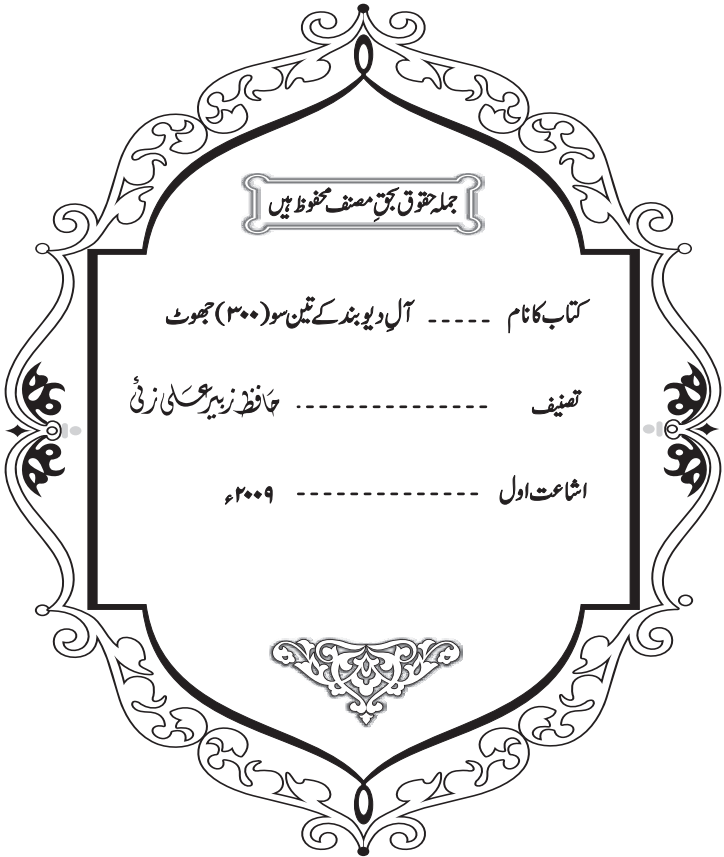 جملہ حقوق بحقِ مصنف محفوظ ہیں
کتاب کا نام ----- آلِ دیوبند کے تین سو (۳۰۰) جھوٹ
تصنیف --------------- حافظ زبیر علی زئی
اشاعت اول -------------- ۲۰۰۹ء